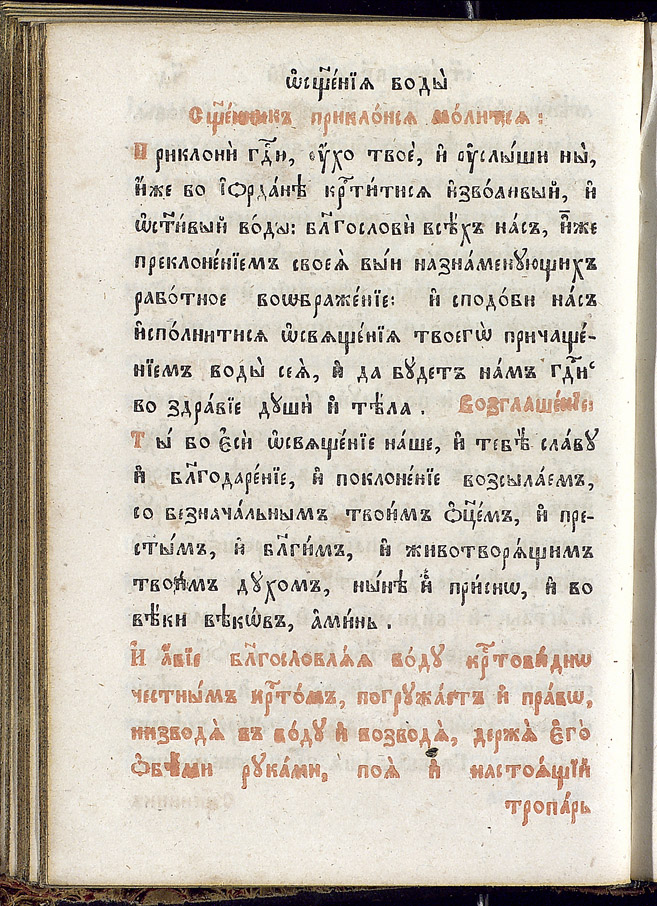 ѡ҆сщ҃е́нїѧ воды̀
Сщ҃е́нникъ приклónсѧ мо́литсѧ:
Приклонѝ гдⷭ҇и, ᲂу҆́хо твоѐ, и҆ ᲂу҆слы́ши ны̀,
и҆́же во і҆ѻрда́нѣ крⷭ҇ти́тисѧ и҆зво́ливый, и҆
ѡ҆ст҃и́вый во́ды: блⷭ҇гословѝ всѣ́хъ на́съ, и҆̀же
преклоне́нїемъ своеѧ̀ вы́и назна́менꙋющихъ
рабо́тное воѡбраже́нїе: и҆ сподо́би на́съ
и҆спо́лнитисѧ ѡ҆свѧще́нїѧ твоегѡ̀ причаще́-
нїемъ воды̀ сеѧ̀, и҆ да бꙋ́детъ на́мъ гдⷭ҇и
во здра́вїе дꙋшѝ и҆ тѣ́ла. Возглаше́нїе:
Ты́ бо є҆сѝ ѡ҆свѧще́нїе на́ше, и҆ тебѣ̀ сла́вꙋ
и҆ блⷭ҇годаре́нїе, и҆ поклоне́нїе возсыла́емъ,
со безнача́льнымъ твои́мъ ѻ҆ц҃е́мъ, и҆ пре-
ст҃ы́мъ, и҆ блⷭ҇ги́мъ, и҆ животворѧ́щимъ
твои́мъ дꙋ́хомъ, ны́нѣ и҆̀ при́снѡ, и҆ во
вѣ́ки вѣкѡ́въ, а҆ми́нь.
И҆ а҆́вїе блⷭ҇гословлѧ́ѧ во́дꙋ крⷭ҇тови́днѡ
честны́мъ крⷭ҇то́мъ, погрꙋжа́етъ и҆ пра́вѡ,
низводѧ̀ въ во́дꙋ и҆ возводѧ̀, держѧ̀ є҆го̀
ѻ҆бѣ́ми рꙋка́ми, поѧ̀ и҆ настоѧ́щїй
тропа́рь